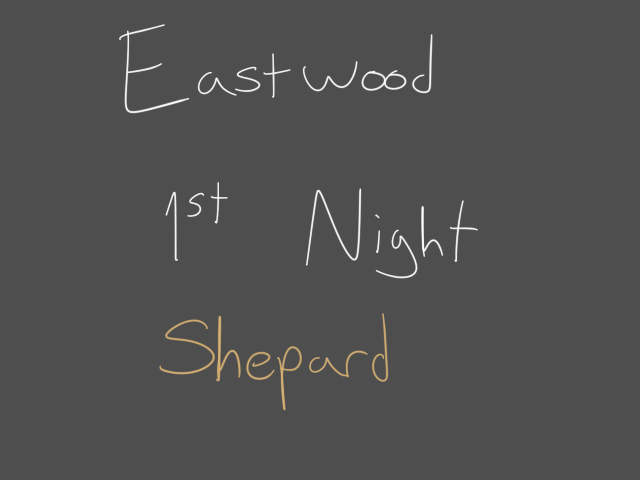 Eastwood
1st Night
Shepard